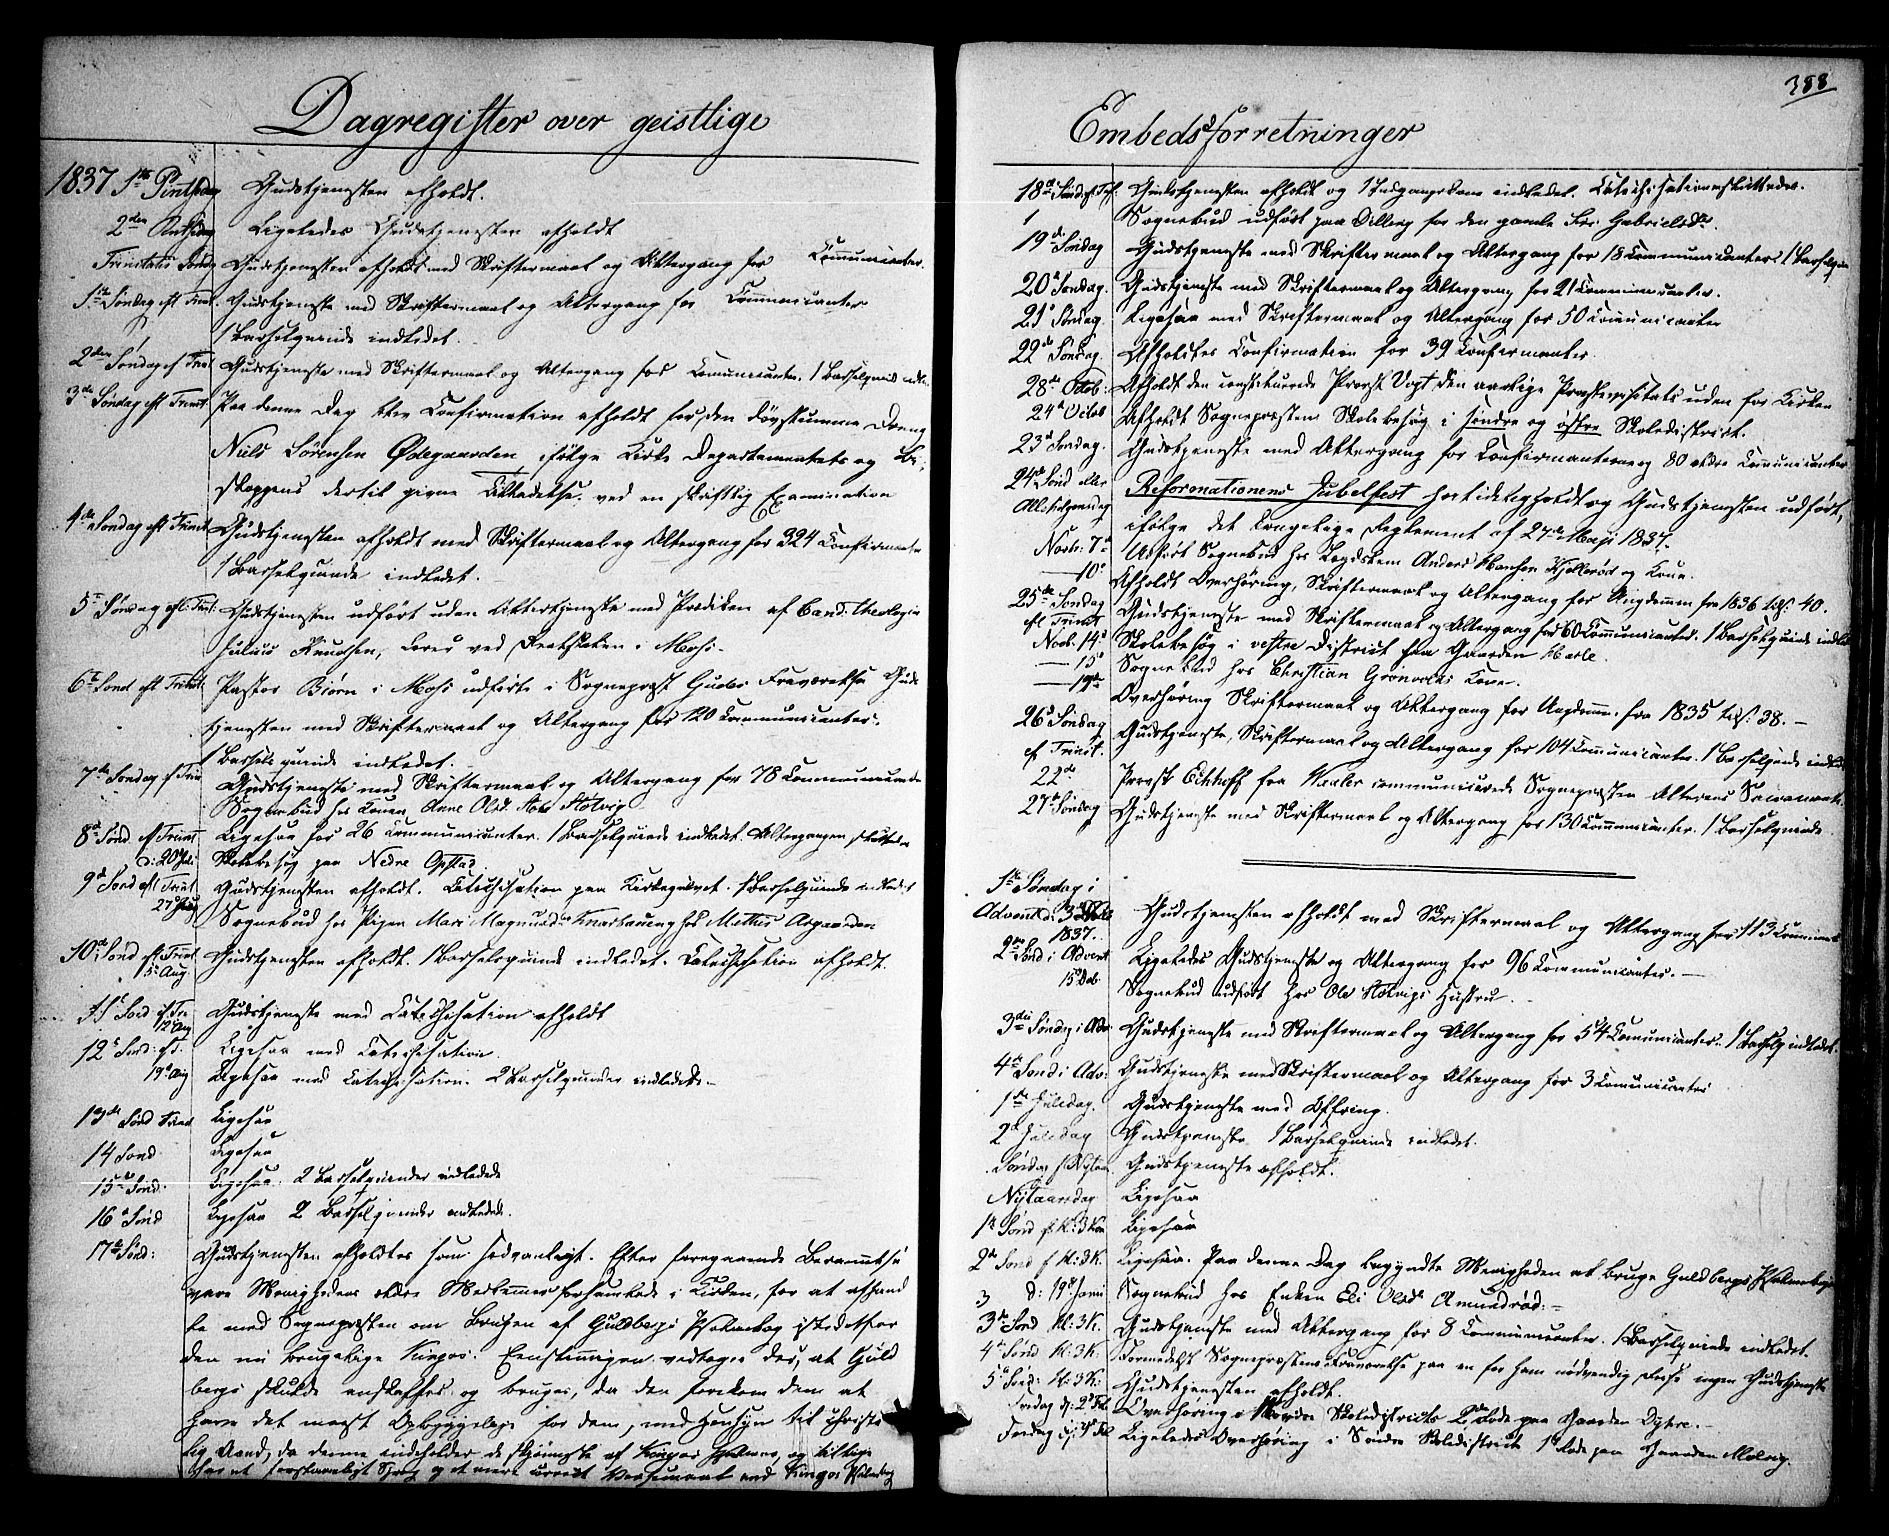 Dagregister over geistlige
1837 1ste Pintsdag Gudstjenesten afholdt.
2den Pintsdag Ligeledes Gudstjenesten afholdt
Trinitatis Søndag Gudstjenesten afholdt med Skriftermaal og Altergang for Communicanter.
1ste Søndag eft Trinit. Gudstjeneste med Skriftermaal og Altergang for Communicanter
1 Barselqvinde indledet.
2den Søndag ef Trinit Gudstjeneste med Skriftermaal og Altergang for Communicanter. 1 Barselqvind indle.
3de Søndag eft Trinit. Paa denne Dag blev Confirmation afholdt for den døvstumme Dreng
Niels Sørensen Ødegaarden ifølge Kirke Departementets og Bi-
skoppens dertil givne Tilladelse ved en skriftlig Examination
4de Søndag eft Trinit Gudstjenesten afholdt med Skriftermaal og Altergang for 324
1 Barselqvinde indledet.
5te Søndag eft Trinit: Gudstjenesten udført uden Altertjeneste med Prædiken af Cand. theologiæ
Julius Knudsen, Lærer ved Realskolen i Moss.
6te Sønd eft Trinit: Pastor Biørn i Moss udførte i Sognepræst Fraværelse Guds-
tjenesten med Skriftermaal og Altergang for 120 Communicanter.
1 Barselqvinde indledet.
7de Søndag ef Trinit Gudstjeneste med Skriftermaal og Altergang for 78 Communicanter
Sognebud hos Konen Anne Olsd.
8de Sønd. ef Trinit Ligesaa for 26 Communicanter. 1 Barselqvinde indledet. Altergangen
d: 20 Juli Skolebesøg paa Nedre Opstad
9de Sønd eft Trinit Gudstjenesten afholdt. Catechisation paa Kirkegulvet. 1 Barselqvinde indledet
27 Sognebud hos Pigen Mari Magnusd. hos Mathis
10de Sønd eft Trinit Gudstjenesten afholdt. 1 Barselqvinde indledet. Catechisation afholdt.
15 Aug
11te Sønd ef Tri Gudstjeneste med Catechisation afholdt
12 Aug
12te Sønd: Ligesaa med Catechisation.
19 Aug Ligesaa med Catechisation. 2 Barselqvinder indledede.
13de Sønd Trinit Ligesaa
14 Sønd Ligesaa
15de Sønd. Ligesaa. 2 Barselqvinder indledede
16de Sønd Ligesaa 2 Barselqvinder indledede.
17de Sønd: Gudstjenesten afholdtes som sædvanligt. Efter foregaaende Berammelse
vare Menighedens ældre Medlemmer forsamlede i Kirken, for at afhand
le med Sognepræsten om Brugen af Guldbergs Psalmebog istedetfor
den nu brugelige Kingos. Eenstemmigen vedtoges der, at Guld
bergs skulde anskaffes og bruges, da den forekom dem at
have det meest Opbyggelige for dem, med Hensyn til christe
lig Aand, da denne indeholder de skjønneste af Kingos Psalmer, og tillige
har et forstaaeligt Sprog og et mere correct Versemaal end Kingos Psalmebog

Embedsforretninger
388
18de Sønd ef Tri. Gudstjenesten afholdt og 1 indledet. Catechisationen
1 Sognebud udført paa Dilling for den gamle Siri Gabrielsd.
19de Søndag Gudstjeneste med Skriftermaal og Altergang for 18 Communicanter. 1 Barselqvin
20de Søndag. Gudstjeneste med Skriftermaal og Altergang for 21 Communicanter.
21de Søndag. Ligesaa med Skriftermaal og Altergang for 50 Communicanter
22de Søndag. Afholdtes Confirmation for 39 Confirmanter.
28de Octob: Afholdt den constituerede Provst Vogt den aarlige Provstevisitats uden for Kirken
24de Octob Afholdt Sognepræsten Skolebesøg i søndre og østre Skoledistrict.
23de Søndag. Gudstjeneste med Altergang for Confirmanterne og 80 andre Communicanter
24de Sønd eller
Allehelgensdag Reformationens Jubelfest høitideligholdt og Gudstjenesten udført,
ifølge det kongelige Reglement af 27de Maji 1837.
Novb: 7de Udført Sognebud hos Lægdslem Anders Hansen Kjellerød og Kone.
10de Afholdt Overhøring, Skriftermaal og Altergang for Ungdommen fra 1836 tils: 40.
25de Søndag
eft Trinit Gudstjeneste med Skriftermaal og Altergang for 60 Communicanter. 1 Barselqvinde indled
Novb. 14de Skolebesøg i vestre District paa Gaarden
15de Sognebud hos Christian Grønvolds Kone.
19de Overhøring Skriftermaal og Altergang for Ungdomm. fra 1835 tils: 38.
26de Søndag
ef Trinit. Gudstjeneste, Skriftermaal og Altergang for 104 Communicanter. 1 Barselqvinde indled
22de Provst Eckhoff fra communicerede Sognepræsten Alterens Sacramente.
27de Søndag Gudstjeneste med Skriftermaal og Altergang for 130 Communicanter. 1 Barselqvinde
1ste Søndag i
Advent d: 3 Decb 1837. Gudstjenesten afholdt med Skriftermaal og Altergang for 113 Communicant
2den Sønd i Advent Ligeledes Gudstjeneste og Altergang for 96 Communicanter.
15 Deb Sognebud udført hos Ole Hustru.
3die Søndag i Adv. Gudstjeneste med Skriftermaal og Altergang for 54 Communicanter. 1 Barselq indledet.
4de Sønd i Adv: Gudstjeneste med Skriftermaal og Altergang for 3 Communicanter
1ste Juledag. Gudstjeneste med Offring.
2de Juledag Gudstjeneste 1 Barselqvinde indledet.
Søndag f. Nytaar Gudstjeneste afholdt.
Nytaarsdag Ligesaa
1te Sønd f H: 3 Kon Ligesaa
2de Sønd f H: 3 K. Ligesaa. Paa denne Dag begyndte Menigheden at bruge Guldbergs Psalmebog
3 d: 19de Janu Sognebud hos Enken Eli Olsd. Amundrød.
3de Sønd H: 3 K. Gudstjeneste med Altergang for 8 Communicanter. 1 Barselqvinde indledet.
4de Sønd H: 3 K. Formedelst Sognepræstens Fraværelse paa en for ham nødvendig Reise ingen Gudstjeneste
5te Sønd: H: 3 K: Gudstjenesten afholdt.
Fredag d: 2de Feb Overhøring i Skoledistricts 2de Rode paa Gaarden Dyhre.
Ligeledes Overhøring i Søndre Skoledistrict 1ste Rode paa Gaarden